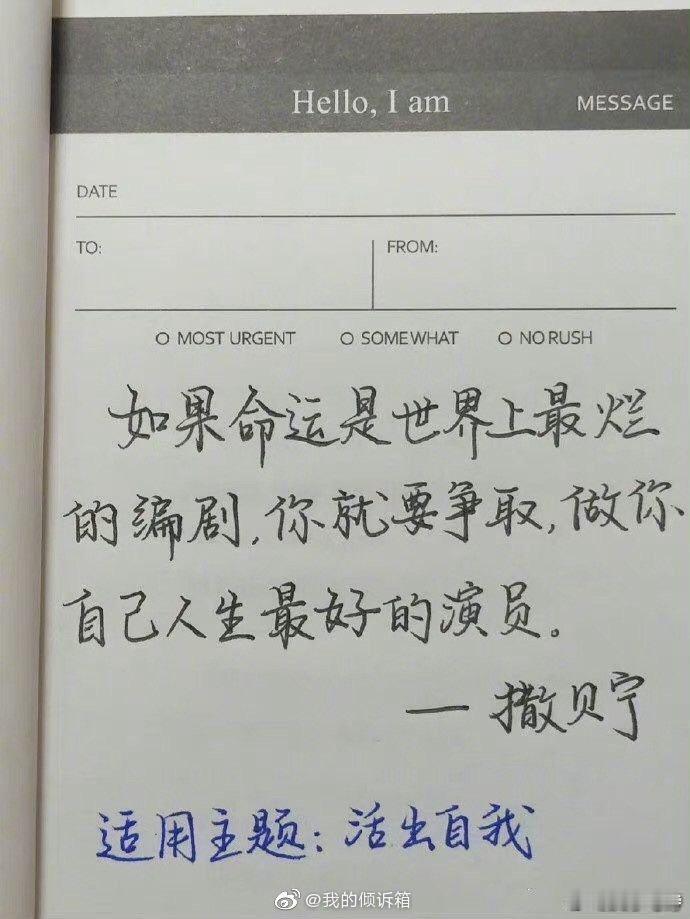 Hello, I am
MESSAGE
DATE
TO:
FROM:
O MOST URGENT O SOMEWHAT O NO RUSH
如果命运是世界上最烂
的编剧,你就要争取,做你
自己人生最好的演员。
— 撒贝宁
适用主题:活出自我
@我的倾诉箱